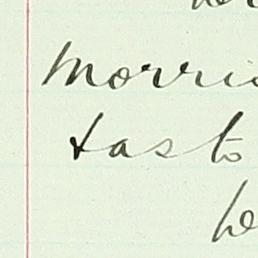 Morri
& as to
he